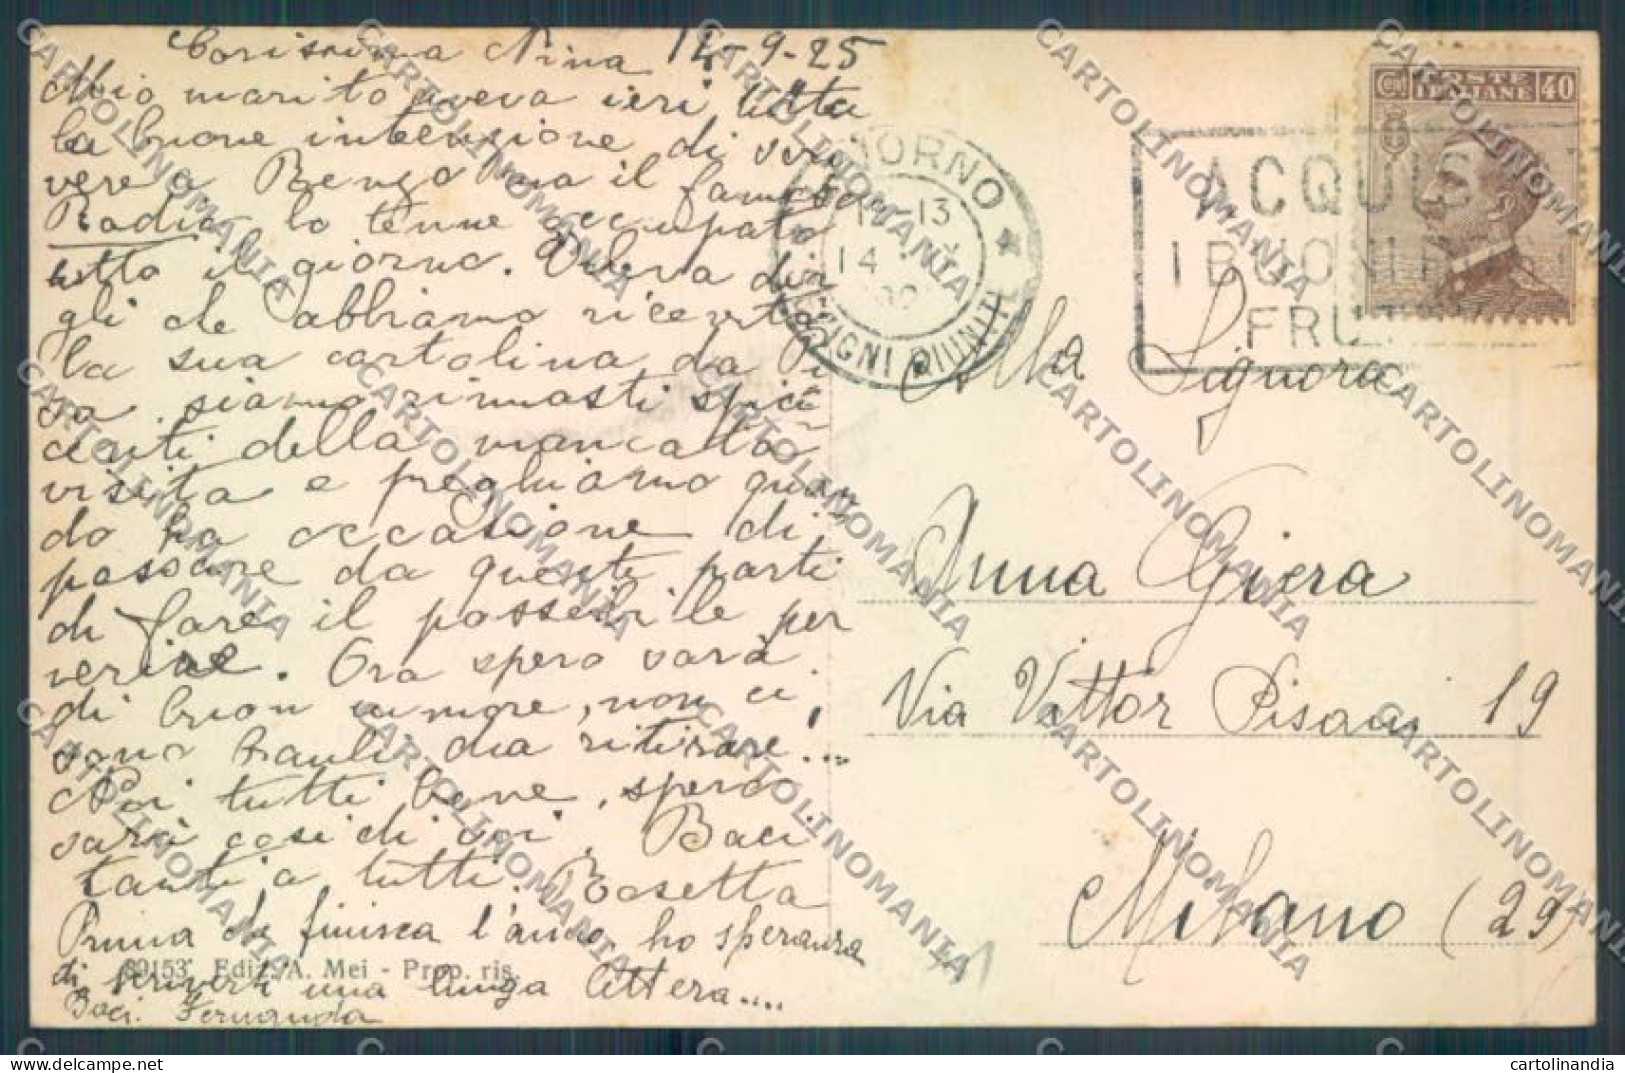 Carissima Nina 14-9-25
Mio marito aveva ieri tutta
la buone intenzione di scri
vere a Renzo ma il famoso
Radio lo tenne occupato
tutto il giorno. Voleva dir
gli che abbiamo ricevuto
la sua cartolina da Pi
sa. siamo rimasti spia-
centi della mancata
visita e preghiamo quan
do ha occasione di
passare da queste parti
di fare il possibile per
venire. Ora spero sarà
di buon umore, non ci
sono bauli da ritirare!...
Noi tutti bene, spero
sarà cosi di voi. Baci
tanti a tutti. Rosetta
Prima che finisca l'anno ho speranza
di scriverti una lunga lettera....
Baci. Fernanda
39153 Ediz. A. Mei - Prop. ris.
LIVORNO
13
14
BAGNI RIUNITI
ACQUIS
I BUONI
FRUT
POSTE
ITALIANE
Cmi 40
Alla Signora
Anna Giera
Via Vittor Pisani 19
Milano (29)
CARTOLINOMANIA
cartolinandia